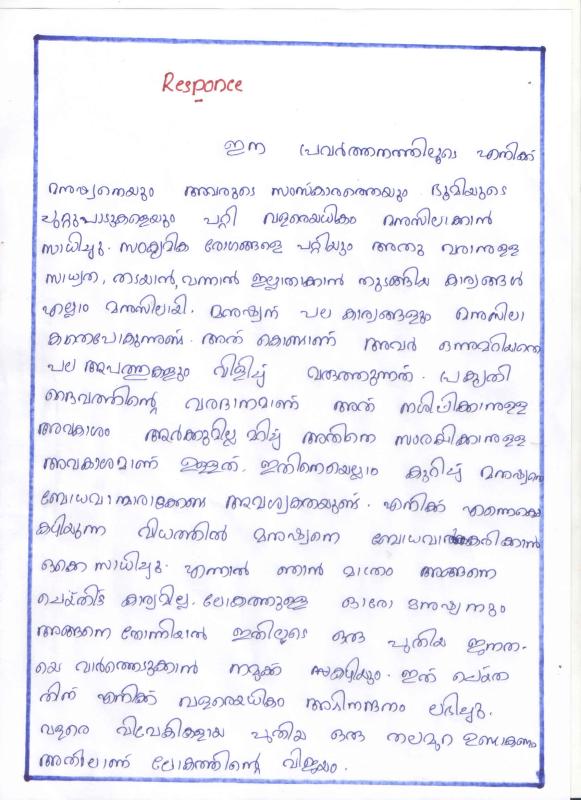 Responce
ഈ പ്രവർത്തനത്തിലൂടെ എനിക്ക്
മനുഷ്യനെയും അവരുടെ സംസ്കാരത്തെയും ഭൂമിയുടെ
ചുറ്റുപാടുകളെയും പറ്റി വളരെയധികം മനസിലാക്കാൻ
സാധിച്ചു. സാംക്രമിക രോഗങ്ങളെ പറ്റിയും അതു വരാനുള്ള
സാധ്യത, തടയാൻ, വന്നാൽ ഇല്ലാതാക്കാൻ തുടങ്ങിയ കാര്യങ്ങൾ
എല്ലാം മനസിലായി. മനുഷ്യന് പല കാര്യങ്ങളും മനസിലാ
കാതെപോകുന്നുണ്ട്. അത് കൊണ്ടാണ് അവർ ഒന്നുമറിയാതെ
പല ആപത്തുകളും വിളിച്ച് വരുത്തുന്നത്. പ്രകൃതി
ദൈവത്തിന്റെ വരദാനമാണ് അത് നശിപ്പിക്കാനുള്ള
അവകാശം ആർക്കുമില്ല മറിച്ച് അതിനെ സംരക്ഷിക്കാനുള്ള
അവകാശമാണ് ഉള്ളത്. ഇതിനെയെല്ലാം കുറിച്ച് മനുഷ്യനെ
ബോധവാന്മാരാക്കേണ്ട ആവശ്യകതയുണ്ട്. എനിക്ക് എന്നെക്കൊ
കഴിയുന്ന വിധത്തിൽ മനുഷ്യനെ ബോധവാൽക്കരിക്കാൻ
ഒക്കെ സാധിച്ചു. എന്നാൽ ഞാൻ മാത്രം അങ്ങനെ
ചെയ്തിട്ട് കാര്യമില്ല. ലോകത്തുള്ള ഓരോ മനുഷ്യനും
അങ്ങനെ തോന്നിയാൽ ഇതിലൂടെ ഒരു പുതിയ ജനത-
യെ വാർത്തെടുക്കാൻ നമുക്ക് സകഴിയും. ഇത് ചെയ്ത
തിന് എനിക്ക് വളരെയധികം അഭിനന്ദനം ലഭിച്ചു.
വളരെ വിവേകികളായ പുതിയ ഒരു തലമുറ ഉണ്ടാകണം
അതിലാണ് ലോകത്തിന്റെ വിജയം.